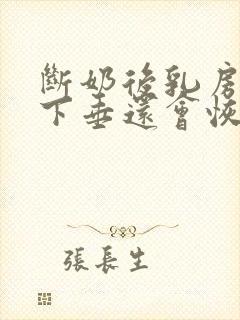 斷奶後乳房
下垂還會恢
張長生